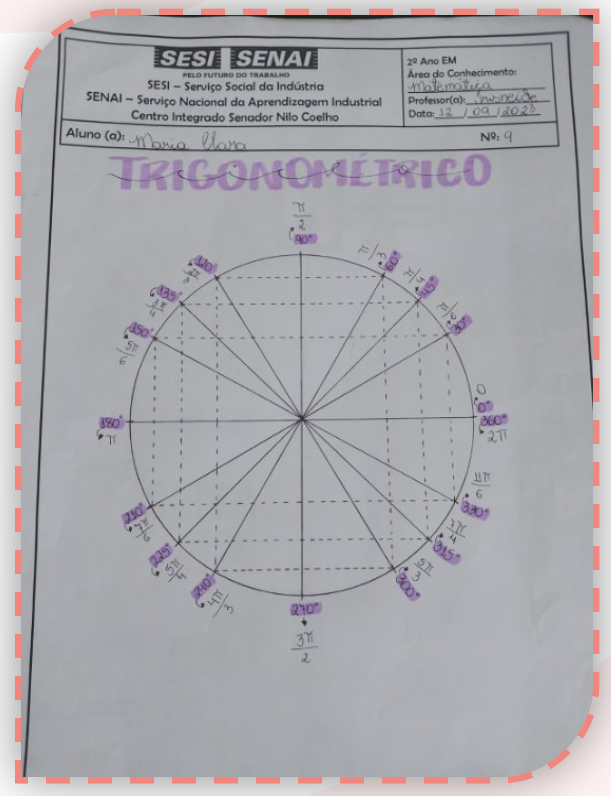 SESI SENAI
PELO FUTURO DO TRABALHO
SESI – Serviço Social da Indústria
SENAI – Serviço Nacional da Aprendizagem Industrial
Centro Integrado Senador Nilo Coelho
2º Ano EM
Área do Conhecimento:
Matemática
Professor(a):
Data: 12 / 09 / 2023
Aluno (a): Maria Clara
Nº: 9
TRIGONOMÉTRICO
π/2
90°
120° 2π/3
π/3 60°
135° 3π/4
π/4 45°
150° 5π/6
π/6 30°
0
0°
180° 360°
π 2π
11π/6
210° 330°
7π/6 7π/4
225° 315°
5π/4 5π/3
240° 300°
4π/3
270°
3π/2